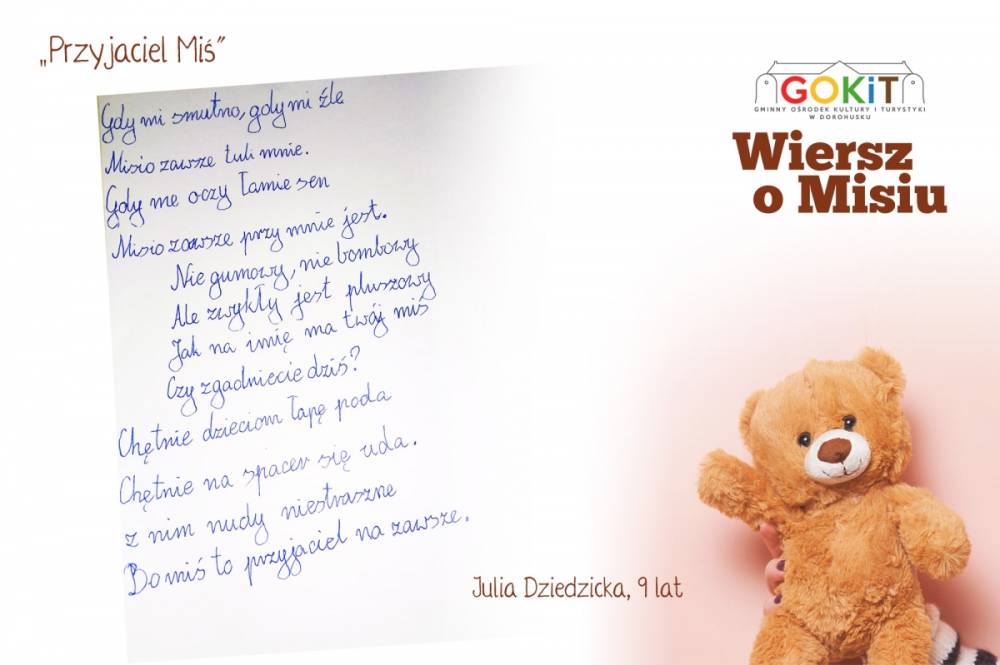 „Przyjaciel Miś”
Gdy mi smutno, gdy mi źle
Misio zawsze tuli mnie.
Gdy me oczy łamie sen
Misio zawsze przy mnie jest.
Nie gumowy, nie bombowy
Ale zwykły jest pluszowy
Jak na imię ma twój miś
Czy zgadniecie dziś?
Chętnie dzieciom łapę poda
Chętnie na spacer się uda.
z nim nudy niestraszne
Bo miś to przyjaciel na zawsze.
Julia Dziedzicka, 9 lat
GOKiT
GMINNY OŚRODEK KULTURY I TURYSTYKI
W DOROHUSKU
Wiersz
o Misiu